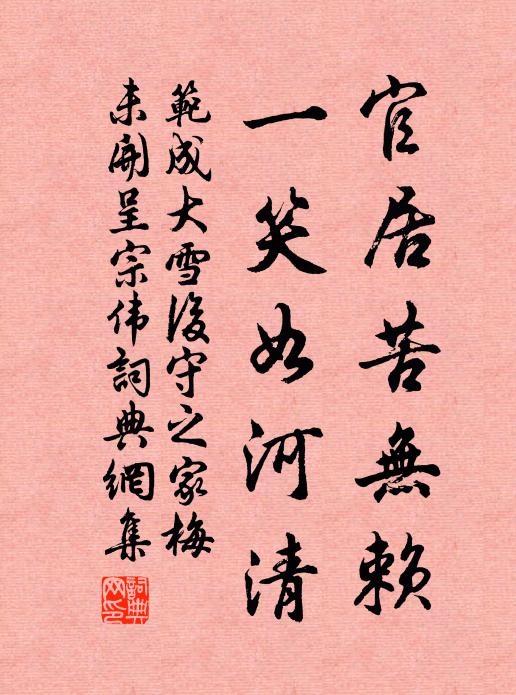 官居苦無賴
一笑如河清
範成大雪後守之家梅
未開呈宗伟詞典網集
詞典网印